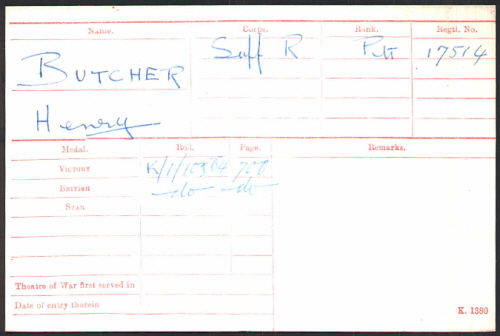 Name. Corps. Rank. Regtl. No.
BUTCHER Suff R Pte 17514
Henry
Medal. Roll. Page. Remarks.
VICTORY K/1/103B4 700
BRITISH -do- -do-
STAR
Theatre of War first served in
Date of entry therein
K. 1380